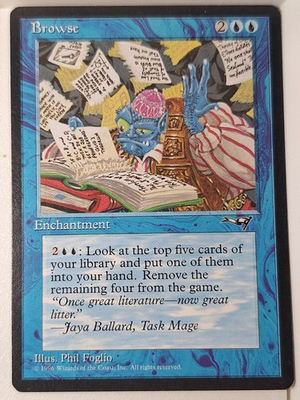 Browse 2
Enchantment
2: Look at the top five cards of
your library and put one of them
into your hand. Remove the
remaining four from the game.
"Once great literature—now great
litter."
—Jaya Ballard, Task Mage
Illus. Phil Foglio
© 1996 Wizards of the Coast, Inc. All rights reserved.